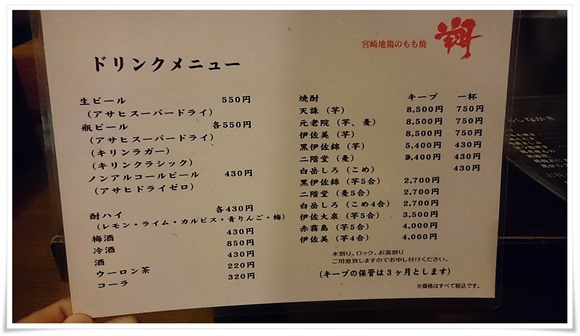 宮崎地鶏のもも焼
ドリンクメニュー
生ビール 550円
(アサヒスーパードライ)
瓶ビール 各550円
(アサヒスーパードライ)
(キリンラガー)
(キリンクラシック)
ノンアルコールビール 430円
(アサヒドライゼロ)
酎ハイ 各430円
(レモン・ライム・カルピス・青りんご・梅)
梅酒 430円
冷酒 850円
酒 430円
ウーロン茶 220円
コーラ 320円
焼酎 キープ 一杯
天誅(芋) 8,500円 750円
元老院(芋、麦) 8,500円 750円
伊佐美(芋) 8,500円 750円
黒伊佐錦(芋) 5,400円 430円
二階堂(麦) 5,400円 430円
白岳しろ(こめ) 430円
黒伊佐錦(芋5合) 2,700円
二階堂(麦5合) 2,700円
白岳しろ(こめ4合) 2,700円
伊佐大泉(芋5合) 3,500円
赤霧島(芋5合) 4,000円
伊佐美(芋4合) 4,000円
水割り、ロック、お湯割り
ご用意致しますのでお申し付けください。
(キープの保管は3ヶ月とします)
※価格はすべて税込です。